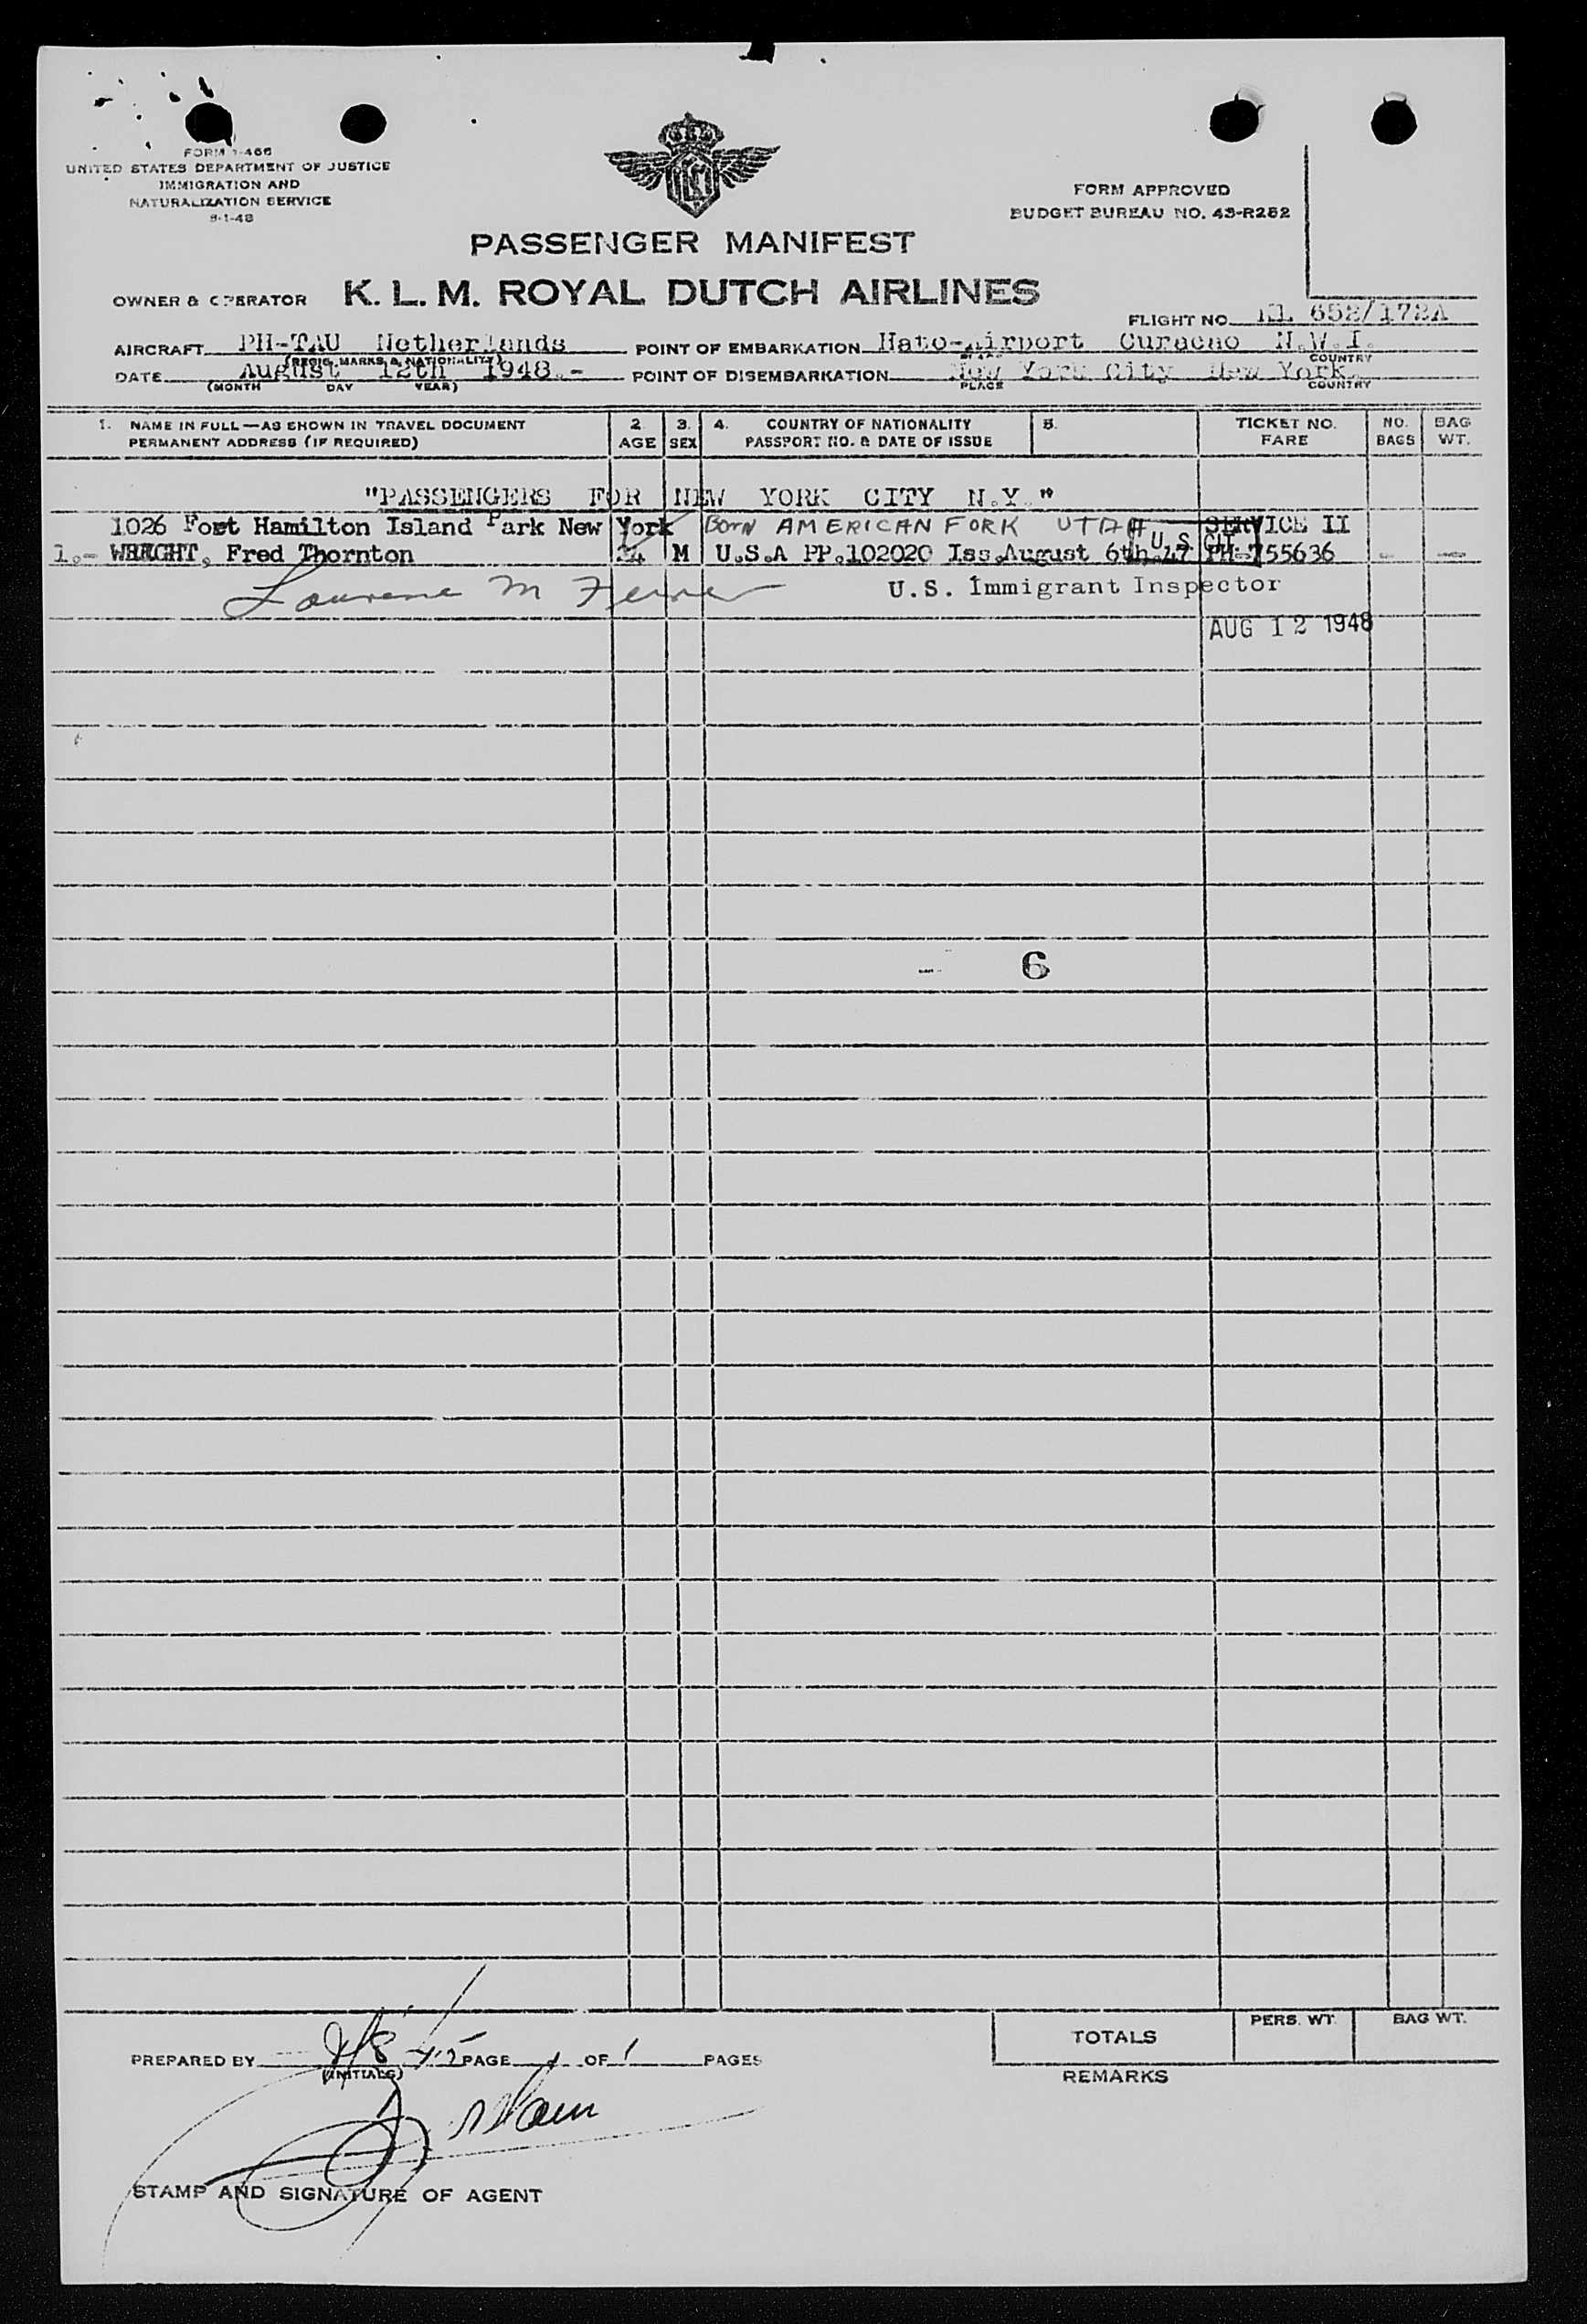 UNITED STATES DEPARTMENT OF JUSTICE
IMMIGRATION AND
NATURALIZATION SERVICE
FORM APPROVED
BUDGET BUREAU NO. 43-R252
PASSENGER MANIFEST
OWNER & OPERATOR K. L. M. ROYAL DUTCH AIRLINES
FLIGHT NO. KL 652/172A
AIRCRAFT PH-TAU Netherlands POINT OF EMBARKATION Hato-Airport Curacao N.W.I.
(REGIS. MARKS & NATIONALITY) PLACE COUNTRY
DATE August 12th 1948.- POINT OF DISEMBARKATION New York City New York.
(MONTH DAY YEAR) PLACE COUNTRY
1. NAME IN FULL—AS SHOWN IN TRAVEL DOCUMENT 2. 3. 4. COUNTRY OF NATIONALITY 5. TICKET NO. NO. BAG
PERMANENT ADDRESS (IF REQUIRED) AGE SEX PASSPORT NO. & DATE OF ISSUE FARE BAGS WT.
"PASSENGERS FOR NEW YORK CITY N.Y."
1026 Fort Hamilton Island Park New York BORN AMERICAN FORK UTAH SERVICE II
1.- WRIGHT, Fred Thornton 24 M U.S.A PP.102020 Iss.August 6th.47 U.S. CIT. PH-755636 - -
U.S. Immigrant Inspector
AUG 12 1948
- 6
TOTALS PERS. WT. BAG WT.
PREPARED BY PAGE 1 OF 1 PAGES
(INITIALS)
REMARKS
STAMP AND SIGNATURE OF AGENT